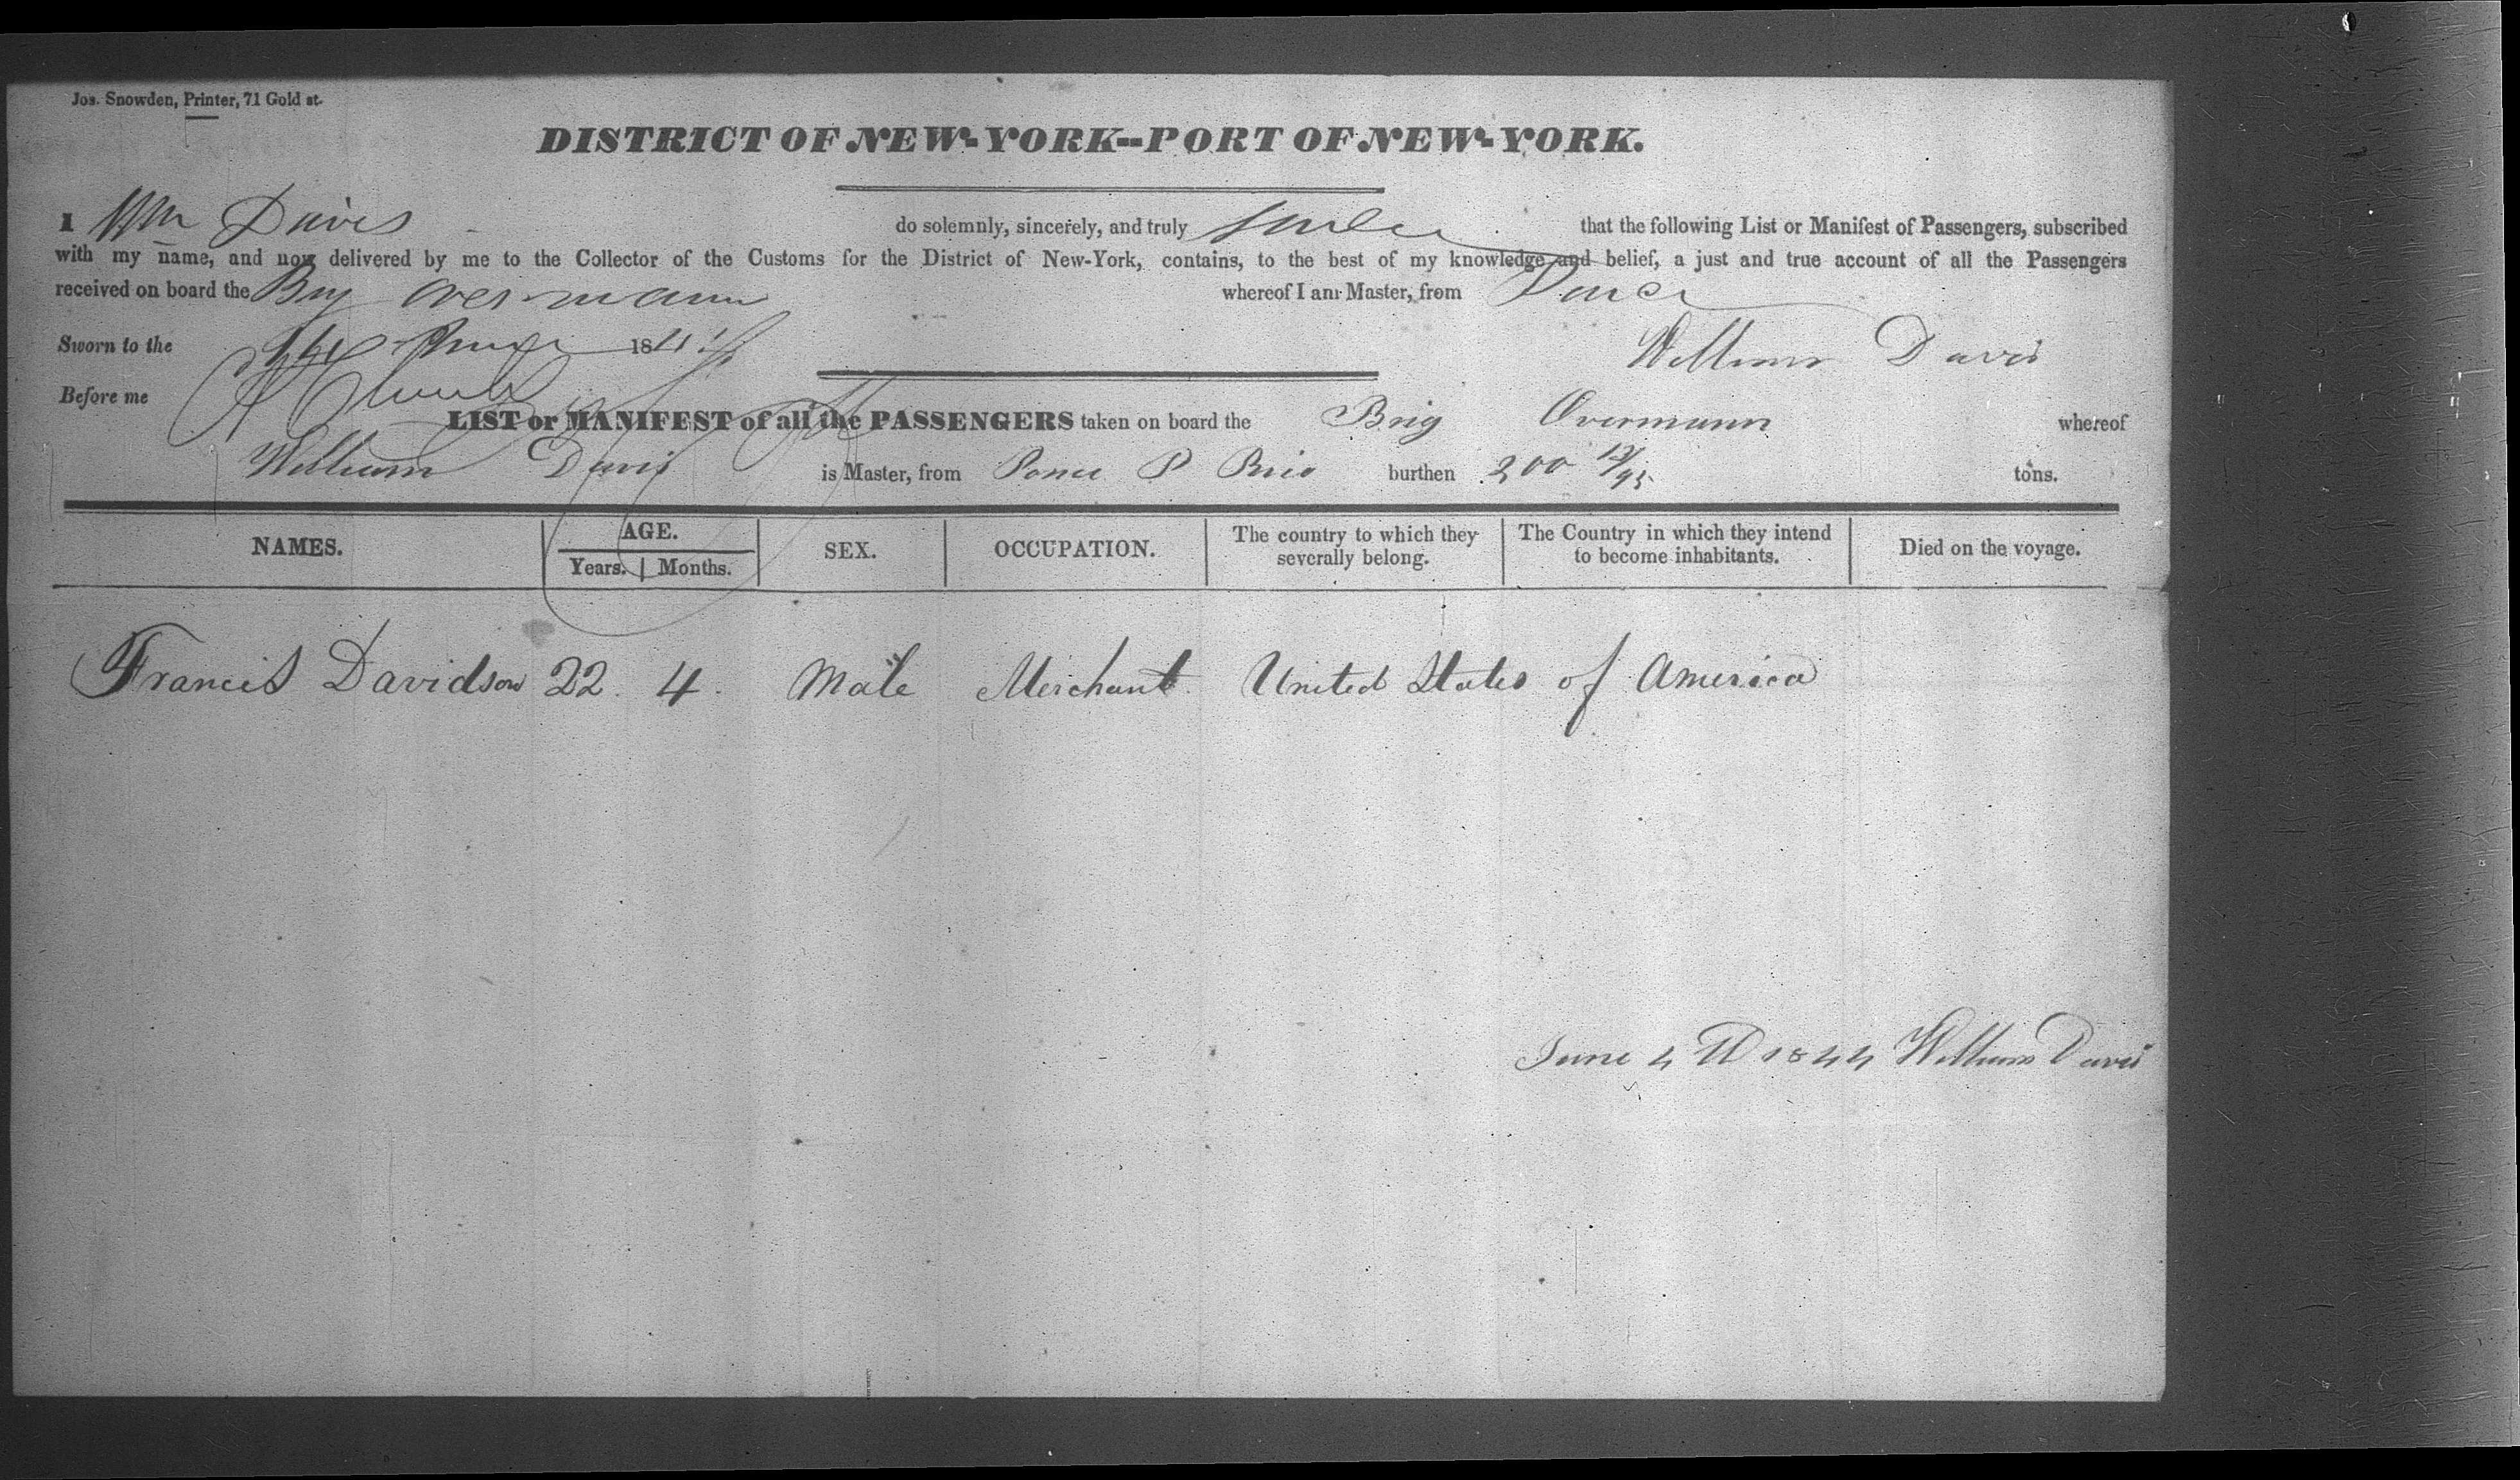 Jos. Snowden, Printer, 71 Gold st.
DISTRICT OF NEW-YORK--PORT OF NEW-YORK.
I Wm Davis do solemnly, sincerely, and truly that the following List or Manifest of Passengers, subscribed
with my name, and now delivered by me to the Collector of the Customs for the District of New-York, contains, to the best of my knowledge and belief, a just and true account of all the Passengers
received on board the Brig Overmann whereof I am Master, from Ponce
Sworn to the June 1844
William Davis
Before me
LIST or MANIFEST of all the PASSENGERS taken on board the Brig Overmann whereof
William Davis is Master, from Ponce P Rico burthen 200 12/95 tons.
NAMES. AGE. Years. Months. SEX. OCCUPATION. The country to which they severally belong. The Country in which they intend to become inhabitants. Died on the voyage.
Francis Davidson 22. 4. Male Merchant. United States of America
June 4th 1844 William Davis